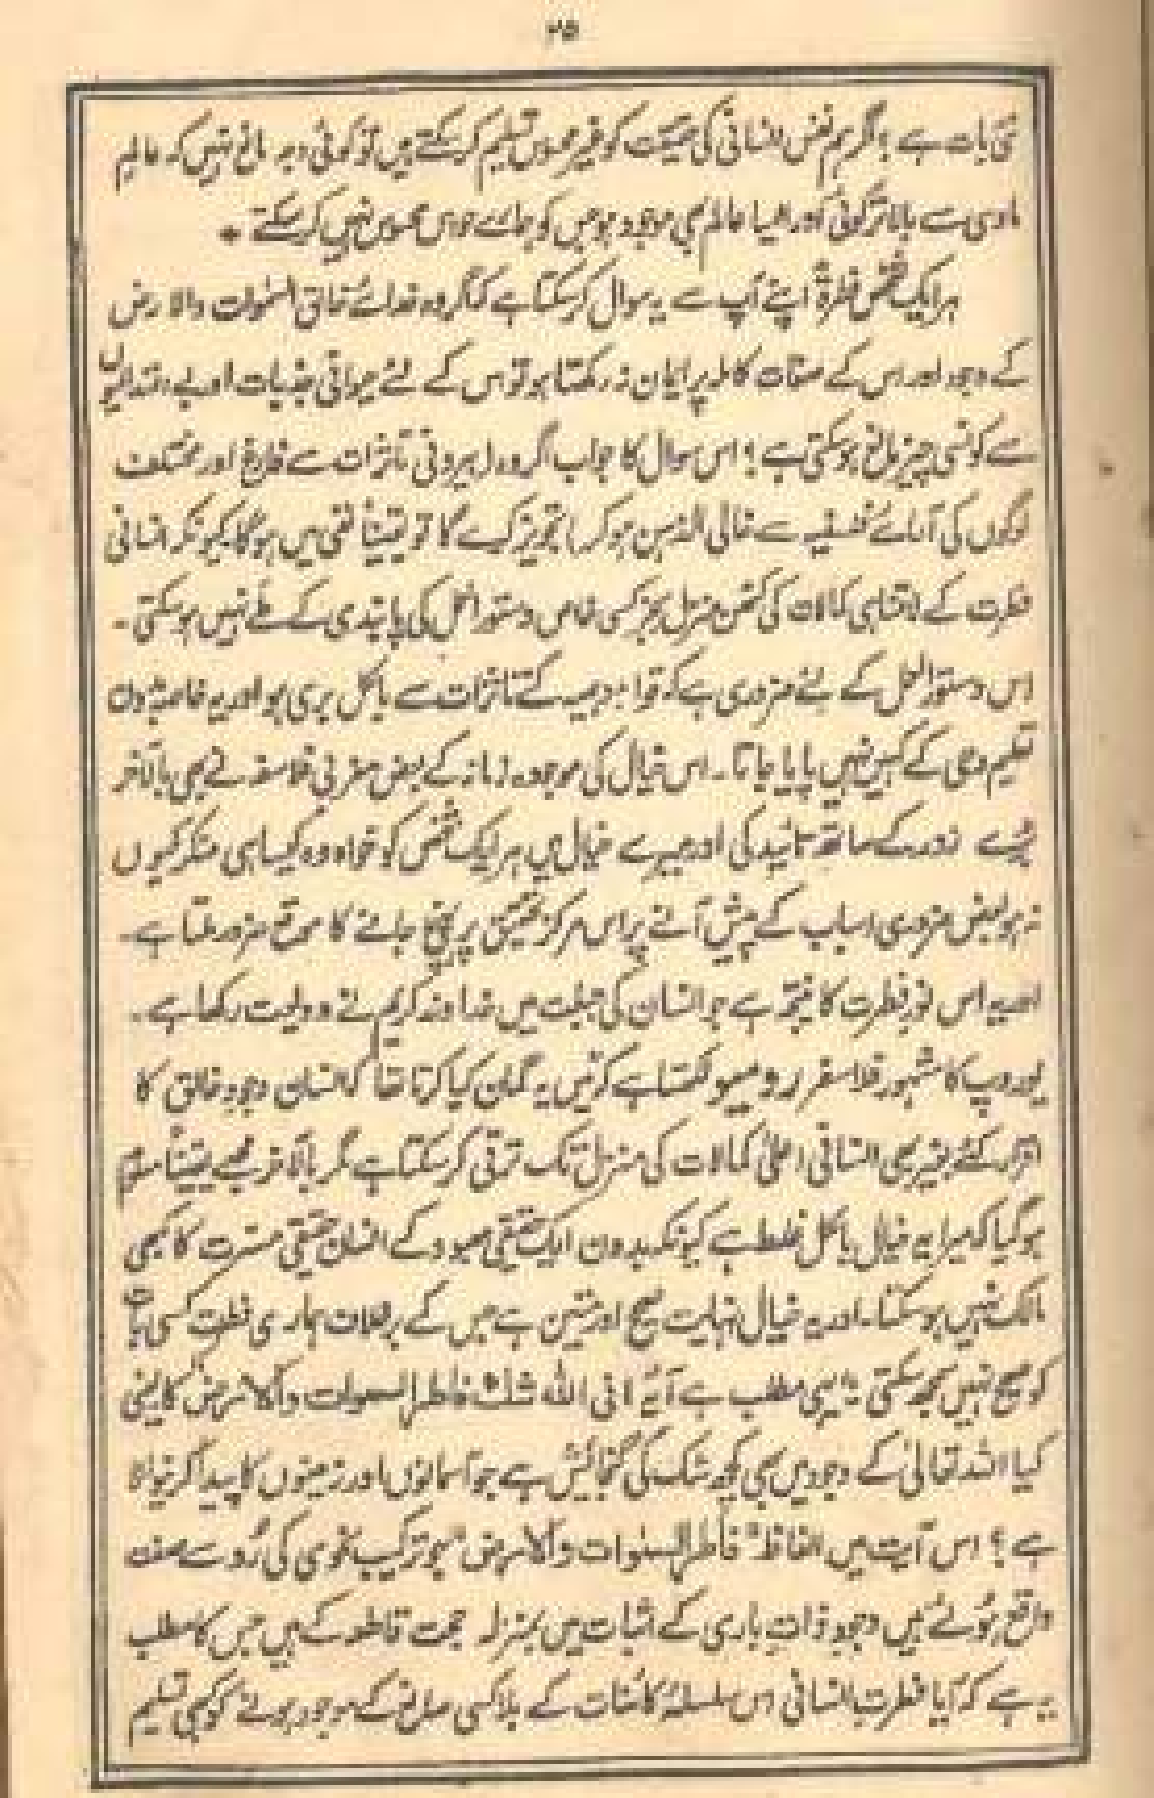 ۲۵
نئی بات ہے؛ اگر ہم نفس انسانی کی حقیقت کو غیر محسوس تسلیم کر سکتے ہیں تو کوئی وجہ مانع نہیں کہ عالم
مادی سے بالاتر کوئی اور ایسا عالم بھی موجود ہو جس کو ہمارے حواس محسوس نہیں کر سکتے *
ہر ایک شخص فطرۃً اپنے آپ سے یہ سوال کر سکتا ہے کہ اگر وہ خدائے خالق السموات والارض
کے وجود اور اس کے صفات کاملہ پر ایمان نہ رکھتا ہو تو اس کے لئے حیوانی جذبات اور بے اعتدالیوں
سے کونسی چیز مانع ہو سکتی ہے؟ اس سوال کا جواب اگر وہ (بیرونی تأثرات سے فارغ اور مختلف
لوگوں کی آرائے فلسفیہ سے خالی الذہن ہو کر) تجویز کرے گا تو یقیناً نفی میں ہوگا کیونکہ انسانی
فطرت کے انتہاہی کمالات کی کٹھن منزل بجز کسی خاص دستور العمل کی پابندی کے طے نہیں ہو سکتی۔
اس دستور العمل کے لئے ضروری ہے کہ قواء بہیمیہ کے تاثرات سے بالکل بری ہو اور یہ خاصہ بدون
تعلیم وحی کے کہیں نہیں پایا جاتا۔ اس خیال کی موجودہ زمانہ کے بعض مغربی فلاسفہ نے بھی بالآخر
بڑے زور کے ساتھ تائید کی اور میرے خیال میں ہر ایک شخص کو خواہ وہ کیسا ہی منکر کیوں
نہ ہو بعض ضروری اسباب کے پیش آنے پر اس مرکز تحقیق پر پہنچ جانے کا موقع ضرور ملتا ہے۔
اور یہ اس نور فطرت کا نتیجہ ہے جو انسان کی جبلت میں خداوند کریم نے ودیعت رکھا ہے۔
یوروپ کا مشہور فلاسفر رومیو لکھتا ہے کہ میں یہ گمان کیا کرتا تھا کہ انسان وجود خالق کا
اقرار کئے بغیر بھی انسانی اعلیٰ کمالات کی منزل تک ترقی کر سکتا ہے مگر بالآخر مجھے یقیناً معلوم
ہو گیا کہ میرا یہ خیال بالکل غلط ہے کیونکہ بدون ایک حقیقی معبود کے انسان حقیقی مسرت کا کبھی
مالک نہیں ہو سکتا۔ اور یہ خیال نہایت صحیح اور متین ہے جس کے برخلاف ہماری فطرت کسی بات
کو صحیح نہیں سمجھ سکتی یہی مطلب ہے آیۂ افی اللہ شك فاطر السموات والارض کا یعنی
کیا اللہ تعالیٰ کے وجود میں بھی کچھ شک کی گنجائش ہے جو آسمانوں اور زمینوں کا پیدا کرنیوالا
ہے؟ اس آیت میں الفاظ "فاطر السموات والارض" جو ترکیب نحوی کی رُو سے صفت
واقع ہوئے ہیں وجود ذات باری کے اثبات میں بمنزلہ حجت قاطعہ کے ہیں جس کا مطلب
یہ ہے کہ آیا فطرت انسانی اس سلسلۂ کائنات کے بلا کسی صانع کے موجود ہونے کو بھی تسلیم